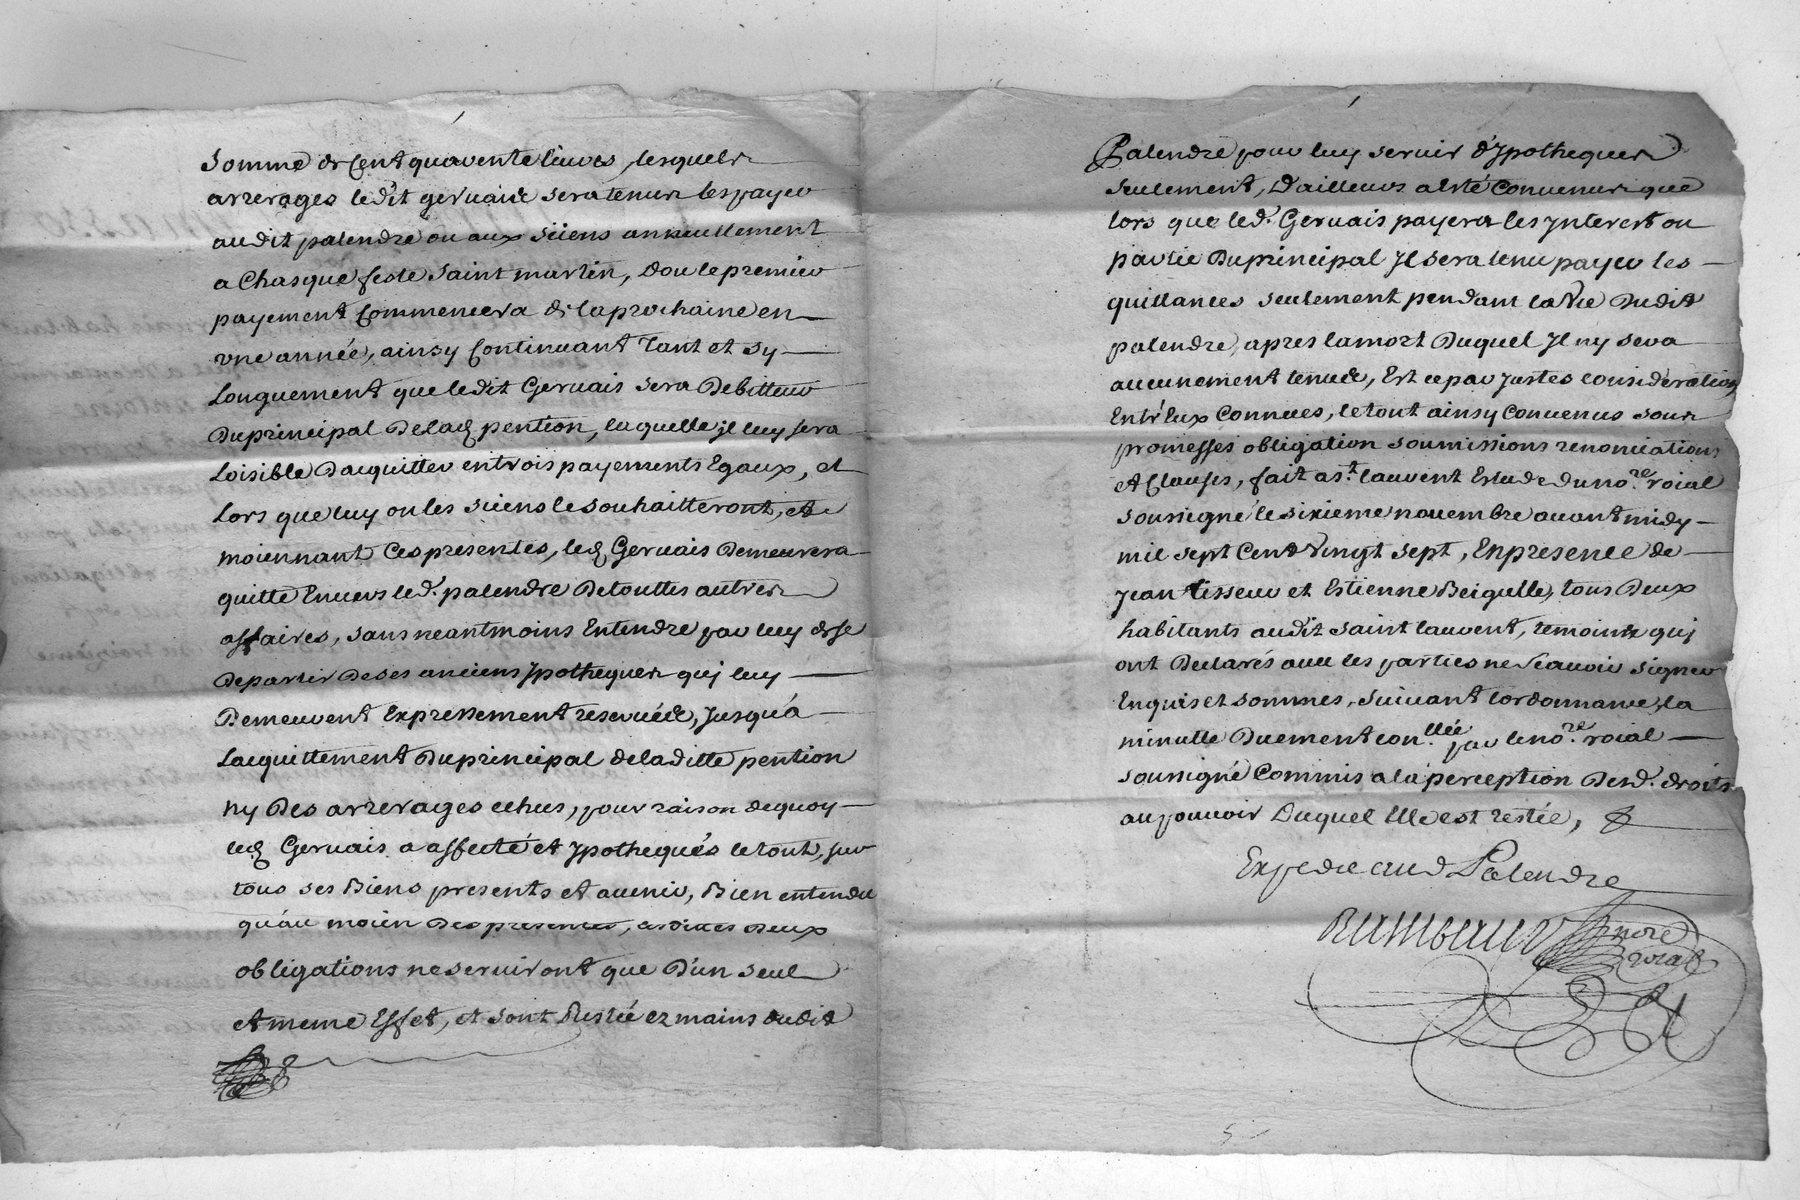 Somme de Cent quarente livres, lesquels
arrerages ledit gervaise sera tenus les payer
audit palendre ou aux siiens annuellement
a Chasque feste saint martin, dou le premier
payement Commencera de la prochaine en
vne année, ainsy Continuant Tant et sy
Longuement que ledit Gervais sera Debitteur
Du principal De lad pention, laquelle jl luy sera
Loisible Dacquitter en trois payements Egaux, et
Lors que luy ou les siiens le souhaitteront, et
moiennant Ces presentes, led Gervais Demeurera
quitte Envers led. palendre De touttes autres
affaires, sans neantmoins Entendre par luy de se
Departir De ses anciens Jpotheques quj luy
Demeurent Expressement reservées, Jusqu'a
Lacquittement Du principal de laditte pention
ny Des arrerages echus, pour raison dequoy
led Gervais a affecté et Jpothequés le tout, sur
tous ses Biens presents et avenir, Bien entendu
qu'au moien Des presentes, lesdites Deux
obligations ne serviront que D'un seul
et meme Effet, et sont Restée ez mains dudit
Palendre pour luy servir d'Jpotheques
seulement, D'ailleurs a lsté Convenus que
lors que led. Gervais payera les Jnterest ou
partie Du principal Jl sera tenu payer les
quittances seulement pendant la Vie Dudit
palendre, apres la mort Duquel Jl ny sera
aucunement tenue, Est ce par Justes considerations
Entr'Eux Connues, le tout ainsy Convenus sous
promesses obligation soumissions renonciations
et Clauses, fait a st. laurent Estude du nore. roial
soussigné le sixieme novembre avant midy
mil sept Cent Vingt sept, En presence de
Jean tisseur et Estienne Beigulle, tous Deux
habitants audit saint laurent, temoins quj
ont Declarés avec les parties ne scavoir signer
Enquis et sommes, suivant lordonnance, la
minutte Duement con.llée par le nore. roial
soussigné Commis a la perception Desd. droits
au pouvoir Duquel Elle est restée,
Expedie aud Palendre
Rambaud nore
roial